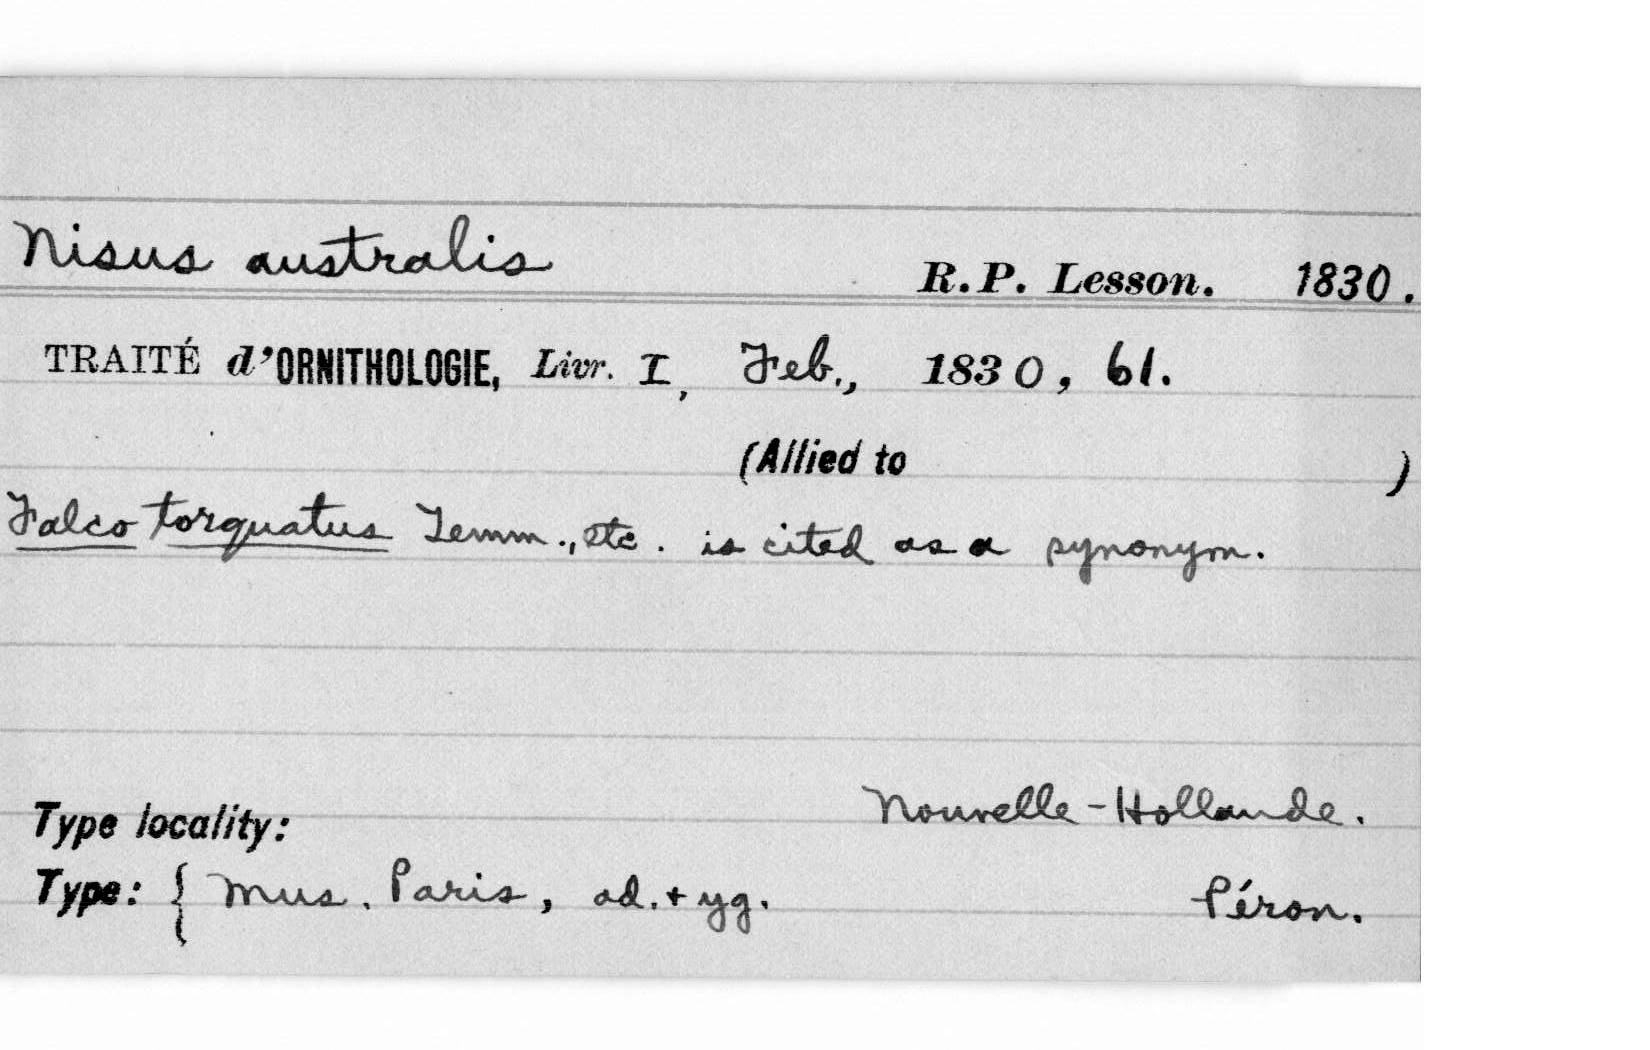 Nisus australis R.P. Lesson. 1830.
TRAITÉ d'ORNITHOLOGIE, Livr. I, Feb., 1830, 61.
(Allied to )
Falco torquatus Temm., etc. is cited as a synonym.
Type locality: Nouvelle-Hollande.
Type: { Mus. Paris, ad. + yg. Péron.